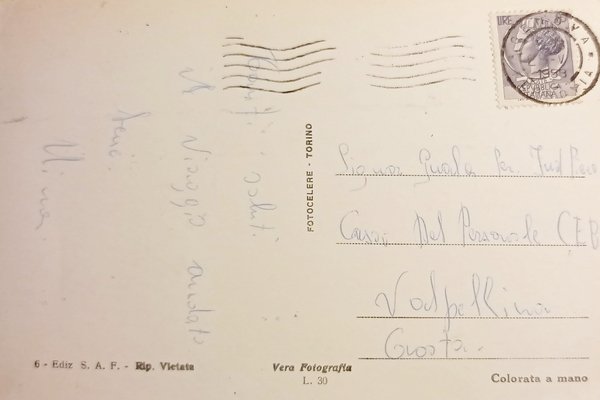 LIRE
1959
Tanti saluti.
Il viaggio andato
bene.
Nina
FOTOCELERE - TORINO
Signor Guala
Casa Del Personale C.E.B
Valpellina
Aosta.
6 - Ediz S. A. F. - Rip. Vietata
Vera Fotografia
L. 30
Colorata a mano